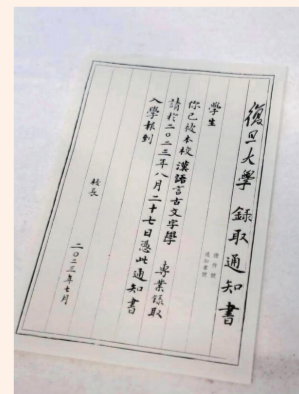 復旦大學 錄取通知書
學生
你已被本校 漢語言古文字學 專業錄取
請於二〇二三年八月二十七日憑此通知書
入學報到
校長
二〇二三年七月